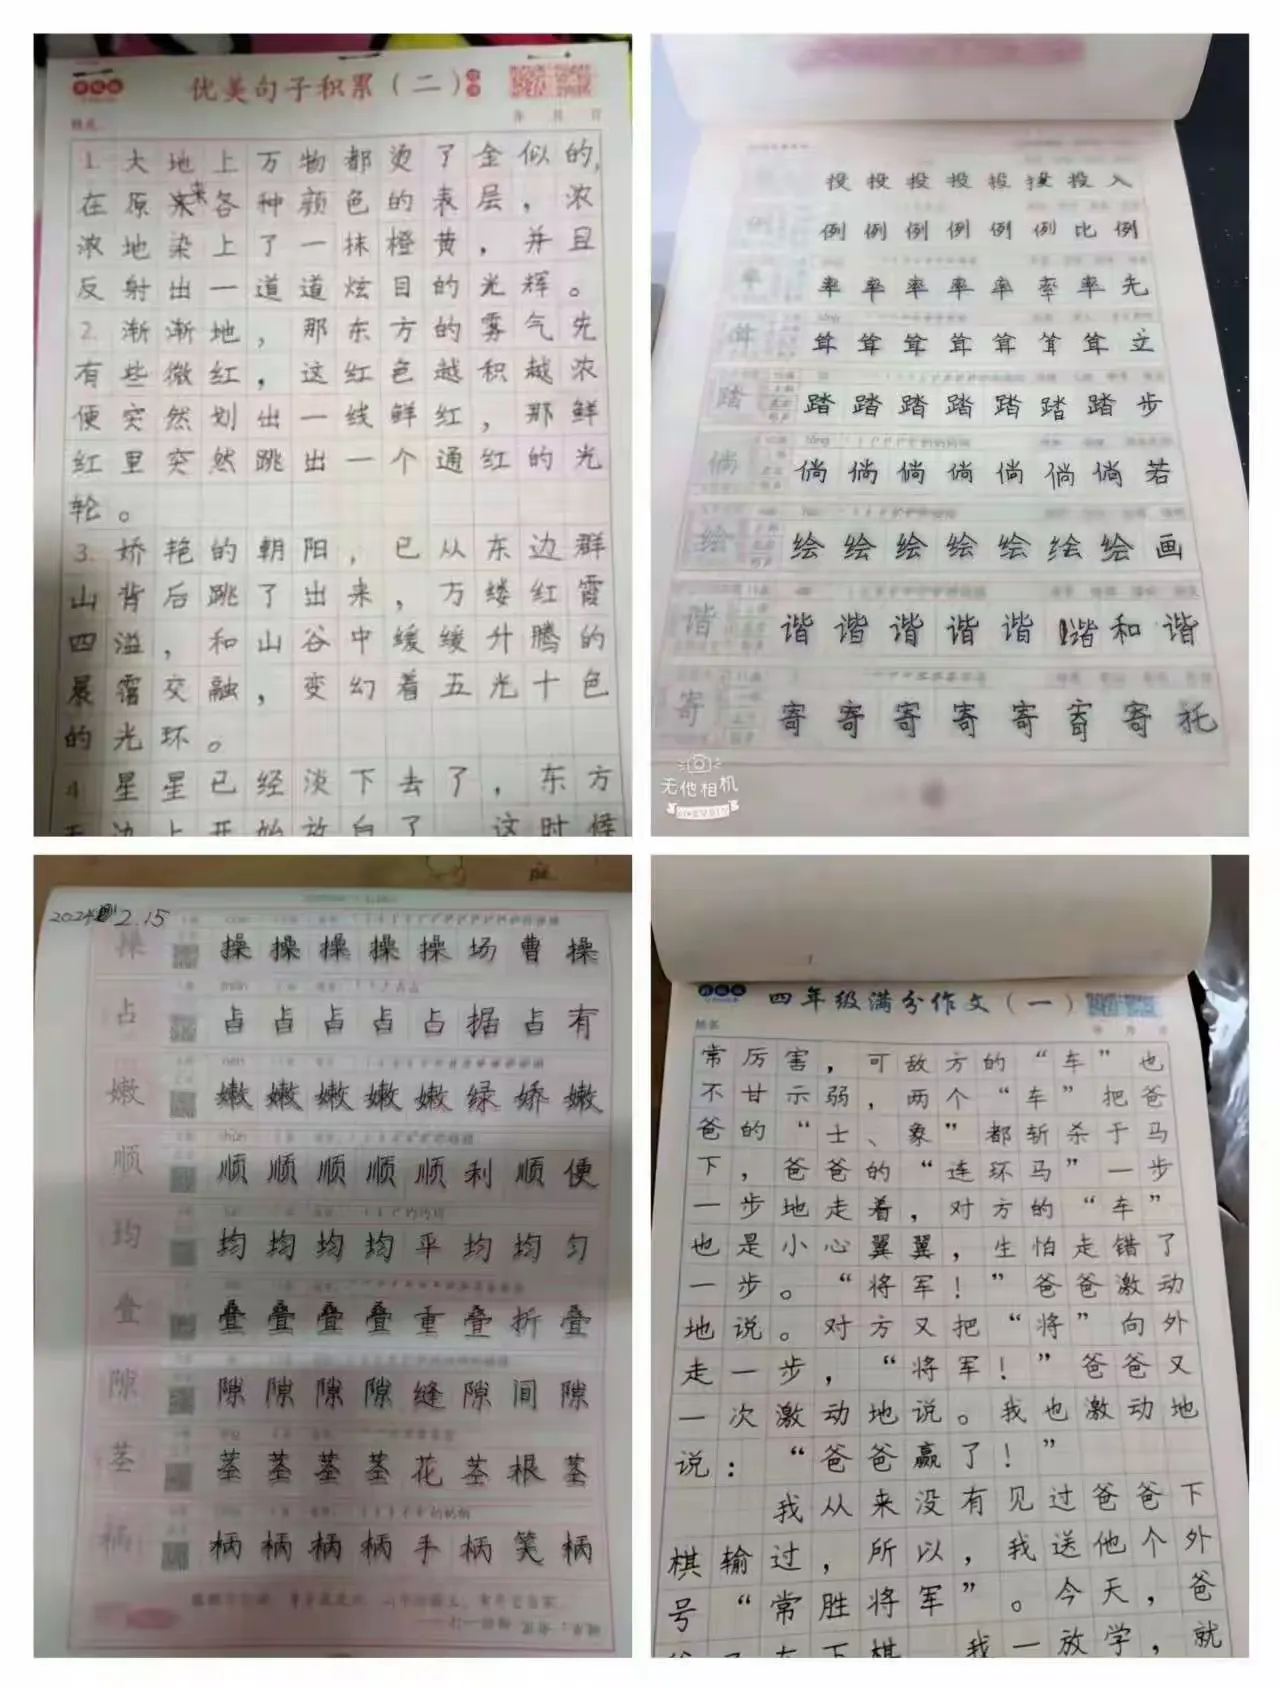 优美句子积累（二）
1. 大地上万物都烫了金似的,
在原来各种颜色的表层，浓
浓地染上了一抹橙黄，并且
反射出一道道炫目的光辉。
2. 渐渐地，那东方的雾气先
有些微红，这红色越积越浓
便突然划出一线鲜红，那鲜
红里突然跳出一个通红的光
轮。
3. 娇艳的朝阳，已从东边群
山背后跳了出来，万缕红霞
四溢，和山谷中缓缓升腾的
晨雾交融，变幻着五光十色
的光环。
4 星星已经淡下去了，东方
天边上开始放白了 这时候
投投投投投投投入
例例例例例例比例
率 率率率率率率率先
耸 耸耸耸耸耸耸耸立
踏 踏踏踏踏踏踏踏步
倘 倘倘倘倘倘倘倘若
绘 绘绘绘绘绘绘绘画
谐 谐谐谐谐谐谐和谐
寄 寄寄寄寄寄寄寄托
无他相机
2.15
操 操操操操操场曹操
占 占占占占占据占有
嫩 嫩嫩嫩嫩嫩绿娇嫩
顺 顺顺顺顺顺利顺便
均 均均均均平均均匀
叠 叠叠叠叠重叠折叠
隙 隙隙隙隙缝隙间隙
茎 茎茎茎茎花茎根茎
柄 柄柄柄柄手柄笑柄
四年级满分作文（一）
常厉害，可敌方的“车”也
不甘示弱，两个“车”把爸
爸的“士、象”都斩杀于马
下，爸爸的“连环马”一步
一步地走着，对方的“车”
也是小心翼翼，生怕走错了
一步。“将军！”爸爸激动
地说。对方又把“将”向外
走一步，“将军！”爸爸又
一次激动地说。我也激动地
说：“爸爸赢了！”
我从来没有见过爸爸下
棋输过，所以，我送他个外
号“常胜将军”。今天，爸
下棋 我一放学，就